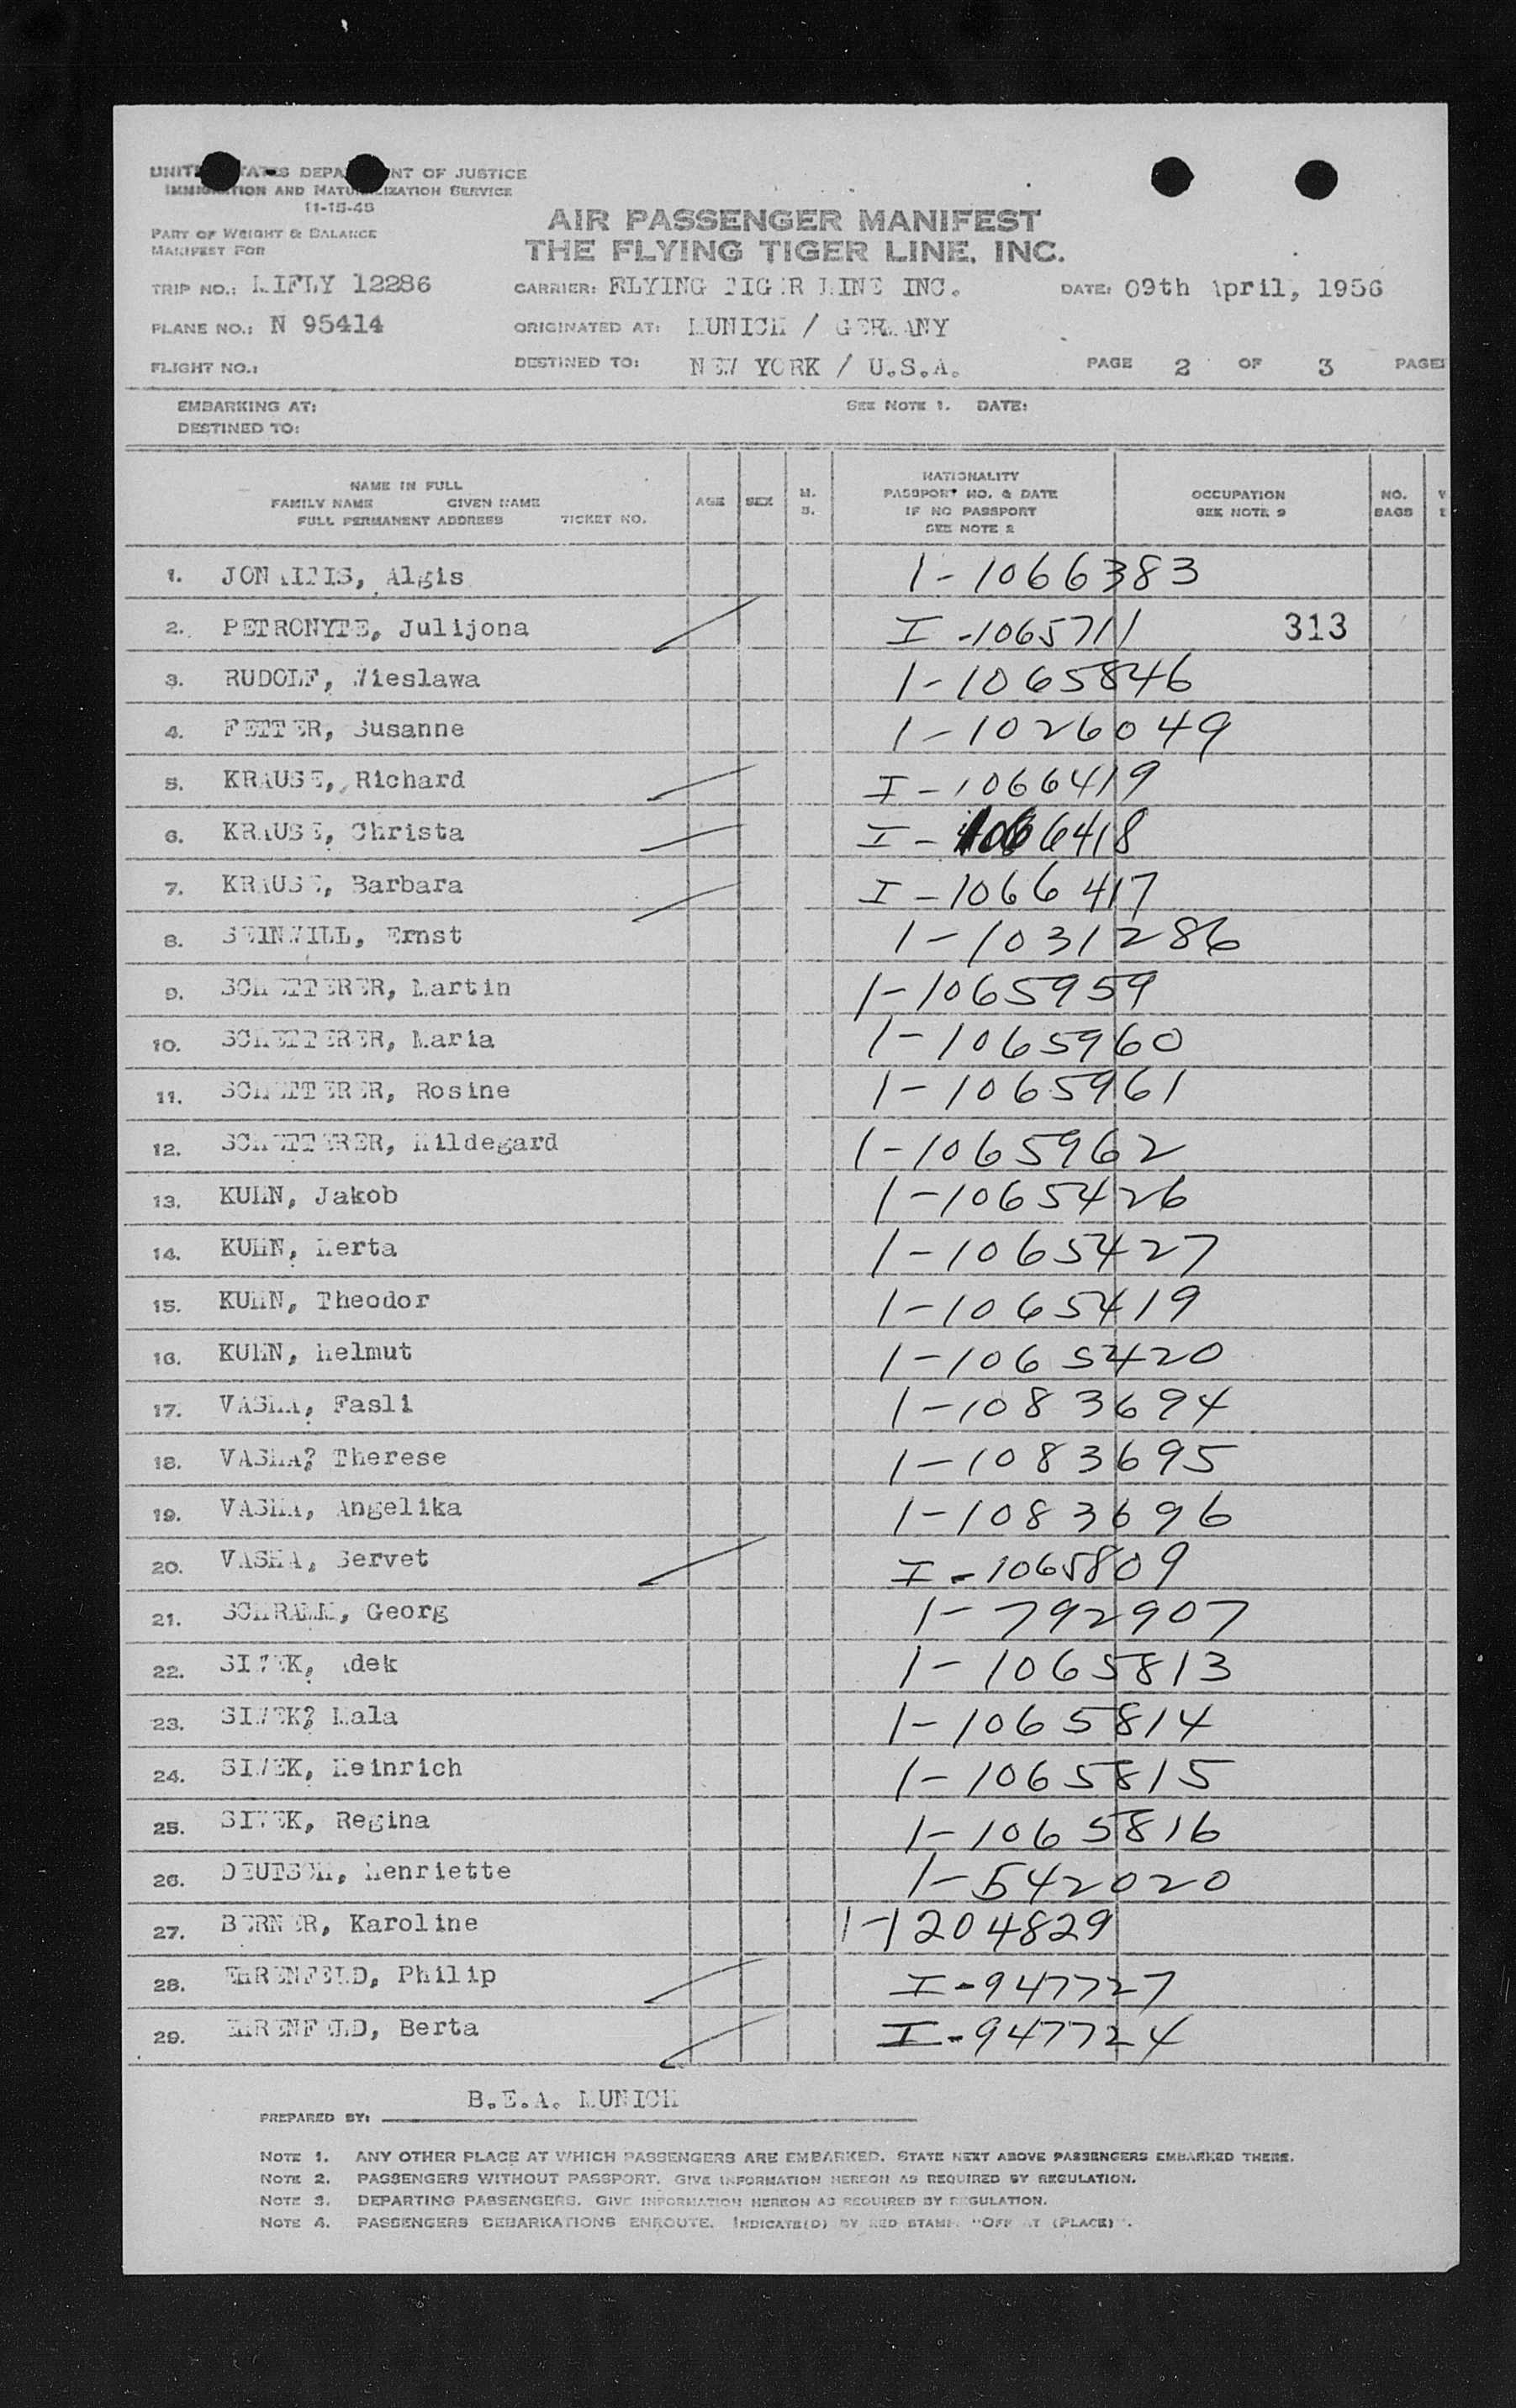 UNITED STATES DEPARTMENT OF JUSTICE
IMMIGRATION AND NATURALIZATION SERVICE
11-15-48
PART OF WEIGHT & BALANCE
MANIFEST FOR
AIR PASSENGER MANIFEST
THE FLYING TIGER LINE, INC.
TRIP NO.: LIFLY 12286 CARRIER: FLYING TIGER LINE INC. DATE: 09th April, 1956
PLANE NO.: N 95414 ORIGINATED AT: MUNICH / GERMANY
FLIGHT NO.: DESTINED TO: NEW YORK / U.S.A. PAGE 2 OF 3 PAGES
EMBARKING AT: SEE NOTE 1. DATE:
DESTINED TO:
NAME IN FULL
FAMILY NAME GIVEN NAME
FULL PERMANENT ADDRESS TICKET NO.
AGE SEX M. S.
NATIONALITY
PASSPORT NO. & DATE
IF NO PASSPORT
SEE NOTE 2
OCCUPATION
SEE NOTE 3
NO.
BAGS
1. JONAITIS, Algis 1-1066383
2. PETRONYTE, Julijona I-1065711 313
3. RUDOLF, Wieslawa 1-1065846
4. FETTER, Susanne 1-1026049
5. KRAUSE, Richard I-1066419
6. KRAUSE, Christa I-1066418
7. KRAUSE, Barbara I-1066417
8. SEINWILL, Ernst 1-1031286
9. SCHETTERER, Martin 1-1065959
10. SCHETTERER, Maria 1-1065960
11. SCHETTERER, Rosine 1-1065961
12. SCHETTERER, Hildegard 1-1065962
13. KUHN, Jakob 1-1065426
14. KUHN, Herta 1-1065427
15. KUHN, Theodor 1-1065419
16. KUHN, Helmut 1-1065420
17. VASHA, Fasli 1-1083694
18. VASHA? Therese 1-1083695
19. VASHA, Angelika 1-1083696
20. VASHA, Servet I-1065809
21. SCHRAMM, Georg 1-792907
22. SIWEK, Adek 1-1065813
23. SIWEK? Mala 1-1065814
24. SIWEK, Heinrich 1-1065815
25. SIWEK, Regina 1-1065816
26. DEUTSCH, Henriette 1-542020
27. BERNER, Karoline 1-1204829
28. EHRENFELD, Philip I-947727
29. EHRENFELD, Berta I-947724
PREPARED BY: B.E.A. MUNICH
NOTE 1. ANY OTHER PLACE AT WHICH PASSENGERS ARE EMBARKED. STATE NEXT ABOVE PASSENGERS EMBARKED THERE.
NOTE 2. PASSENGERS WITHOUT PASSPORT. GIVE INFORMATION HEREON AS REQUIRED BY REGULATION.
NOTE 3. DEPARTING PASSENGERS. GIVE INFORMATION HEREON AS REQUIRED BY REGULATION.
NOTE 4. PASSENGERS DEBARKATIONS ENROUTE. INDICATE(D) BY RED STAMP "OFF AT (PLACE)".